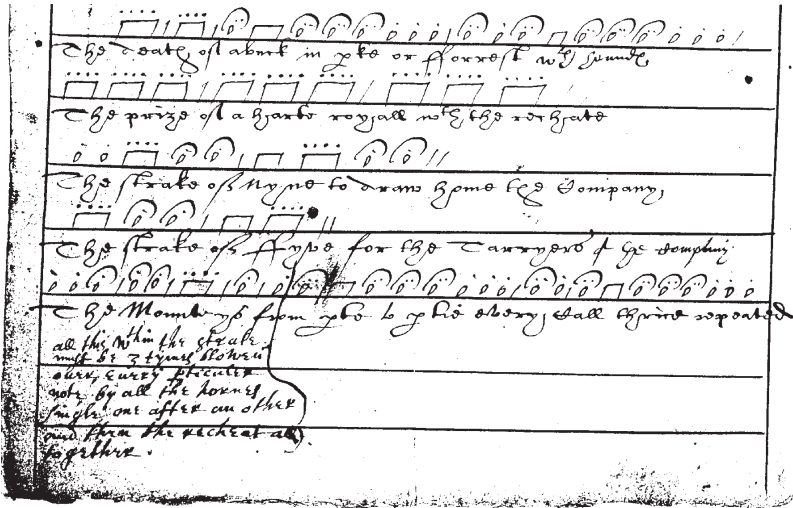 The death of a buck in pke or fforrest wth houndes
The prize of a harte royall wth the rechate
The strake of Nyne to draw home the Company
The strake of ffyve for the Tarryers of the Company
The Mounte ys from pke to pke every Call thrice repeated
all this wthin the strake
must be 3 tymes blowen
over, every pticuler
note by all the hornes
single one after an other
and then the recheat all
together.